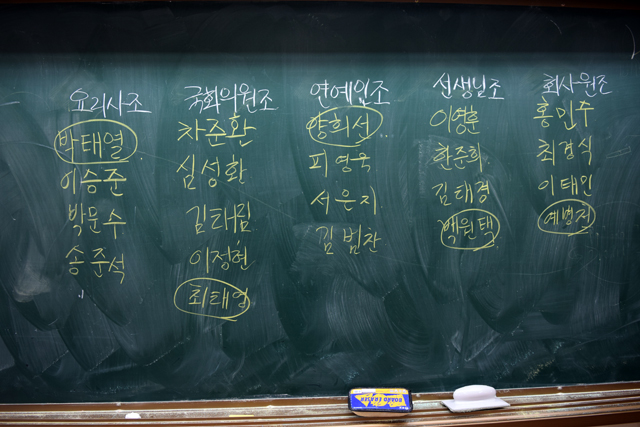 요리사조
박태열
이승준
박문수
송준석
국회의원조
차준환
심성화
김태림
이정현
최태영
연예인조
양희선
피영욱
서은지
김범찬
선생님조
이영훈
한준희
김태경
백원택
회사원조
홍민주
최경식
이태인
예병전
BOARD ERASER